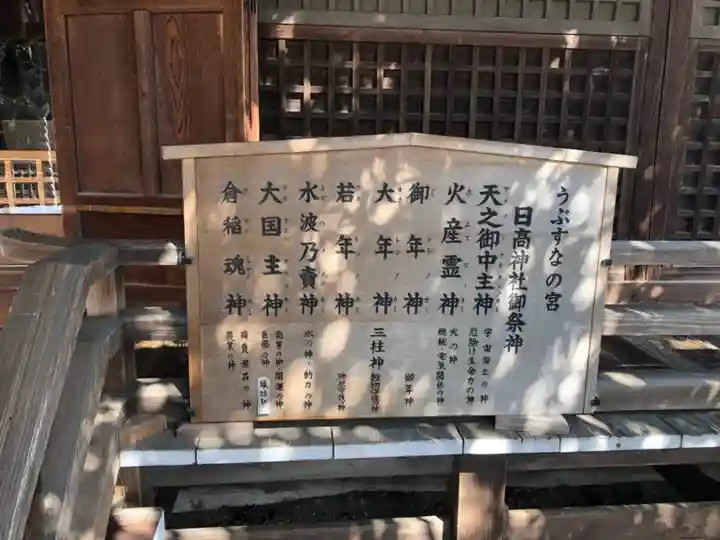 うぶすなの宮
日高神社御祭神
天之御中主神
宇宙国土の神
厄除け生命力の神
火産霊神
火の神
機械・電気関係の神
御年神
御年神
大年神
三柱神
若年神
水波乃賣神
水の神・釣力の神
大国主神
商業の神・開運の神
医薬の神
縁結び
倉稲魂神
商賣繁昌の神
農業の神